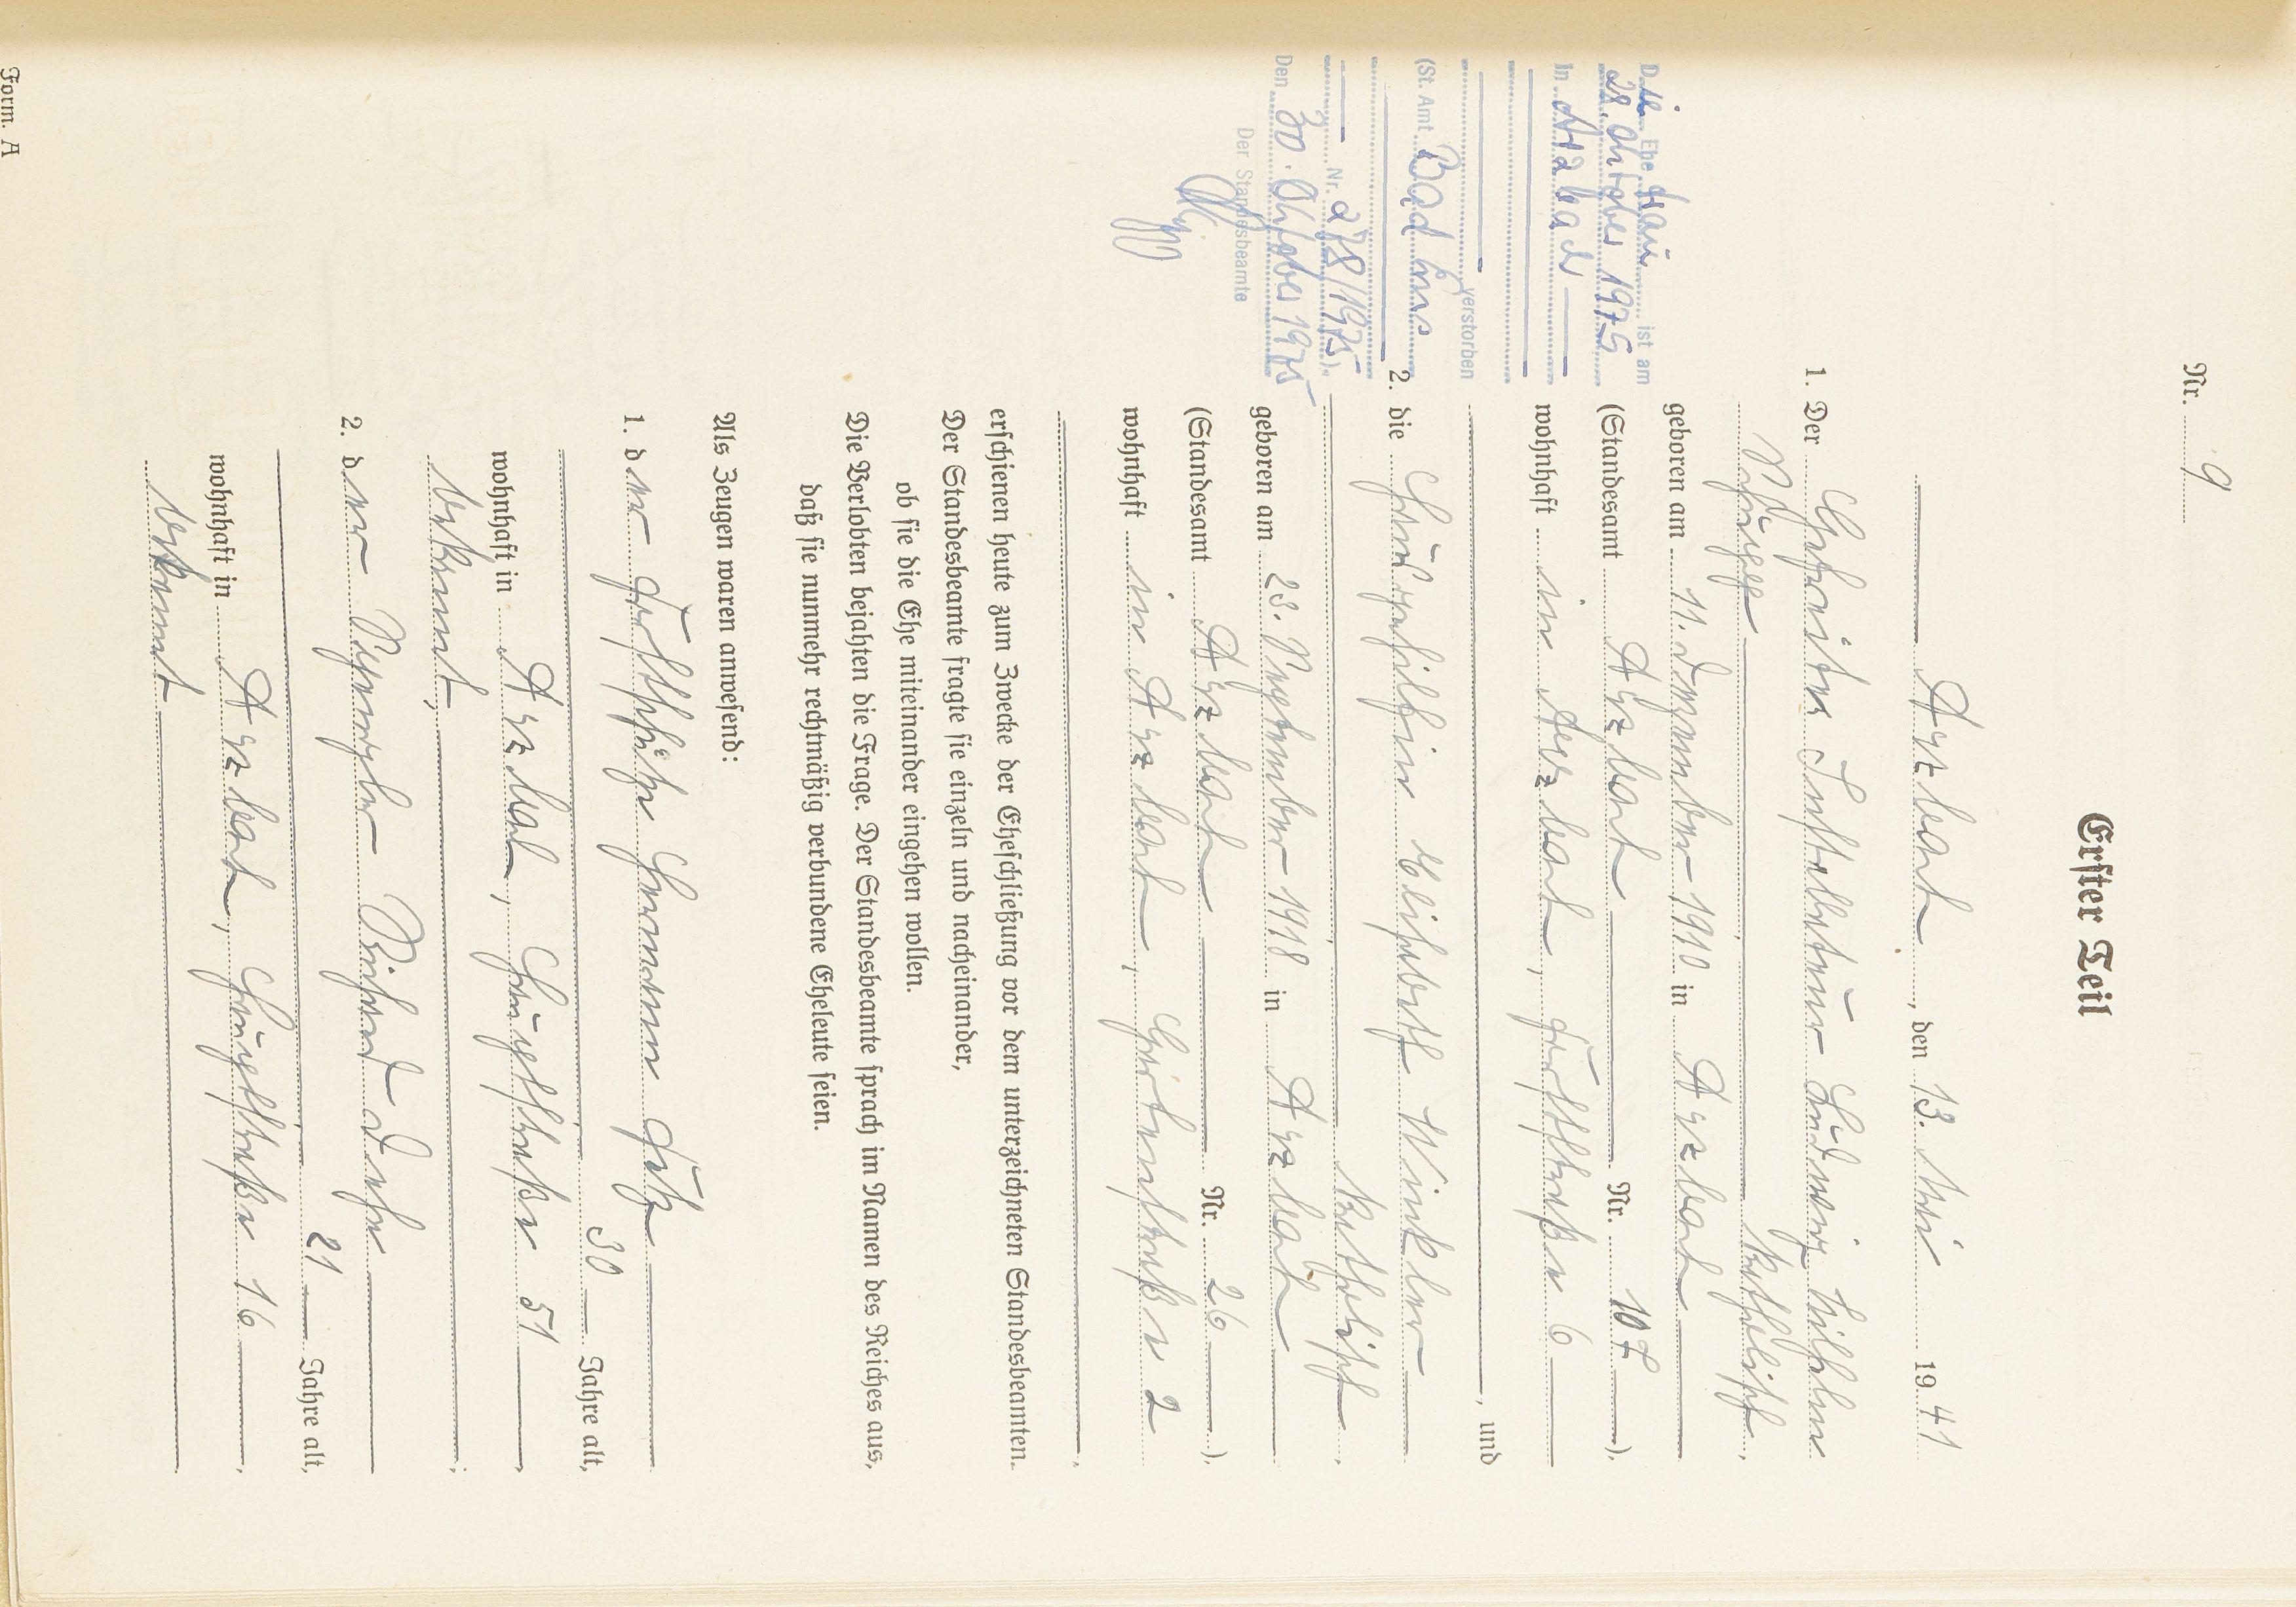 Nr. 9
Erster Teil
Arzbach, den 13. Mai 1941
1. Der Gefreiter Installateur Ludwig Wilhelm
katholisch,
geboren am 11. Dezember 1910 in Arzbach
(Standesamt Arzbach Nr. 107),
wohnhaft in Arzbach, 6
, und
2. die Hausgehilfin Elisabeth Winkler
katholisch,
geboren am 23. September 1918 in Arzbach
(Standesamt Arzbach Nr. 26),
wohnhaft in Arzbach, Gartenstraße 2
,
erschienen heute zum Zwecke der Eheschließung vor dem unterzeichneten Standesbeamten.
Der Standesbeamte fragte sie einzeln und nacheinander,
ob sie die Ehe miteinander eingehen wollen.
Die Verlobten bejahten die Frage. Der Standesbeamte sprach im Namen des Reiches aus,
daß sie nunmehr rechtmäßig verbundene Eheleute seien.
Als Zeugen waren anwesend:
1. der Hermann
30 Jahre alt,
wohnhaft in Arzbach, Hauptstraße 51,
bekannt, ;
2. der
21 Jahre alt,
wohnhaft in Arzbach, Hauptstraße 16,
bekannt ,
Die Ehefrau ist am
28. Oktober 1975
in Arzbach
verstorben
(St. Amt Bad Ems
Nr. 278/1975).
Den 30. Oktober 1975
Der Standesbeamte
Form. A